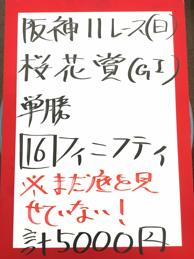 阪神11レース(日)
桜花賞(GI)
単勝
16フィニフティ
※まだ底を見
せていない!
計5000円